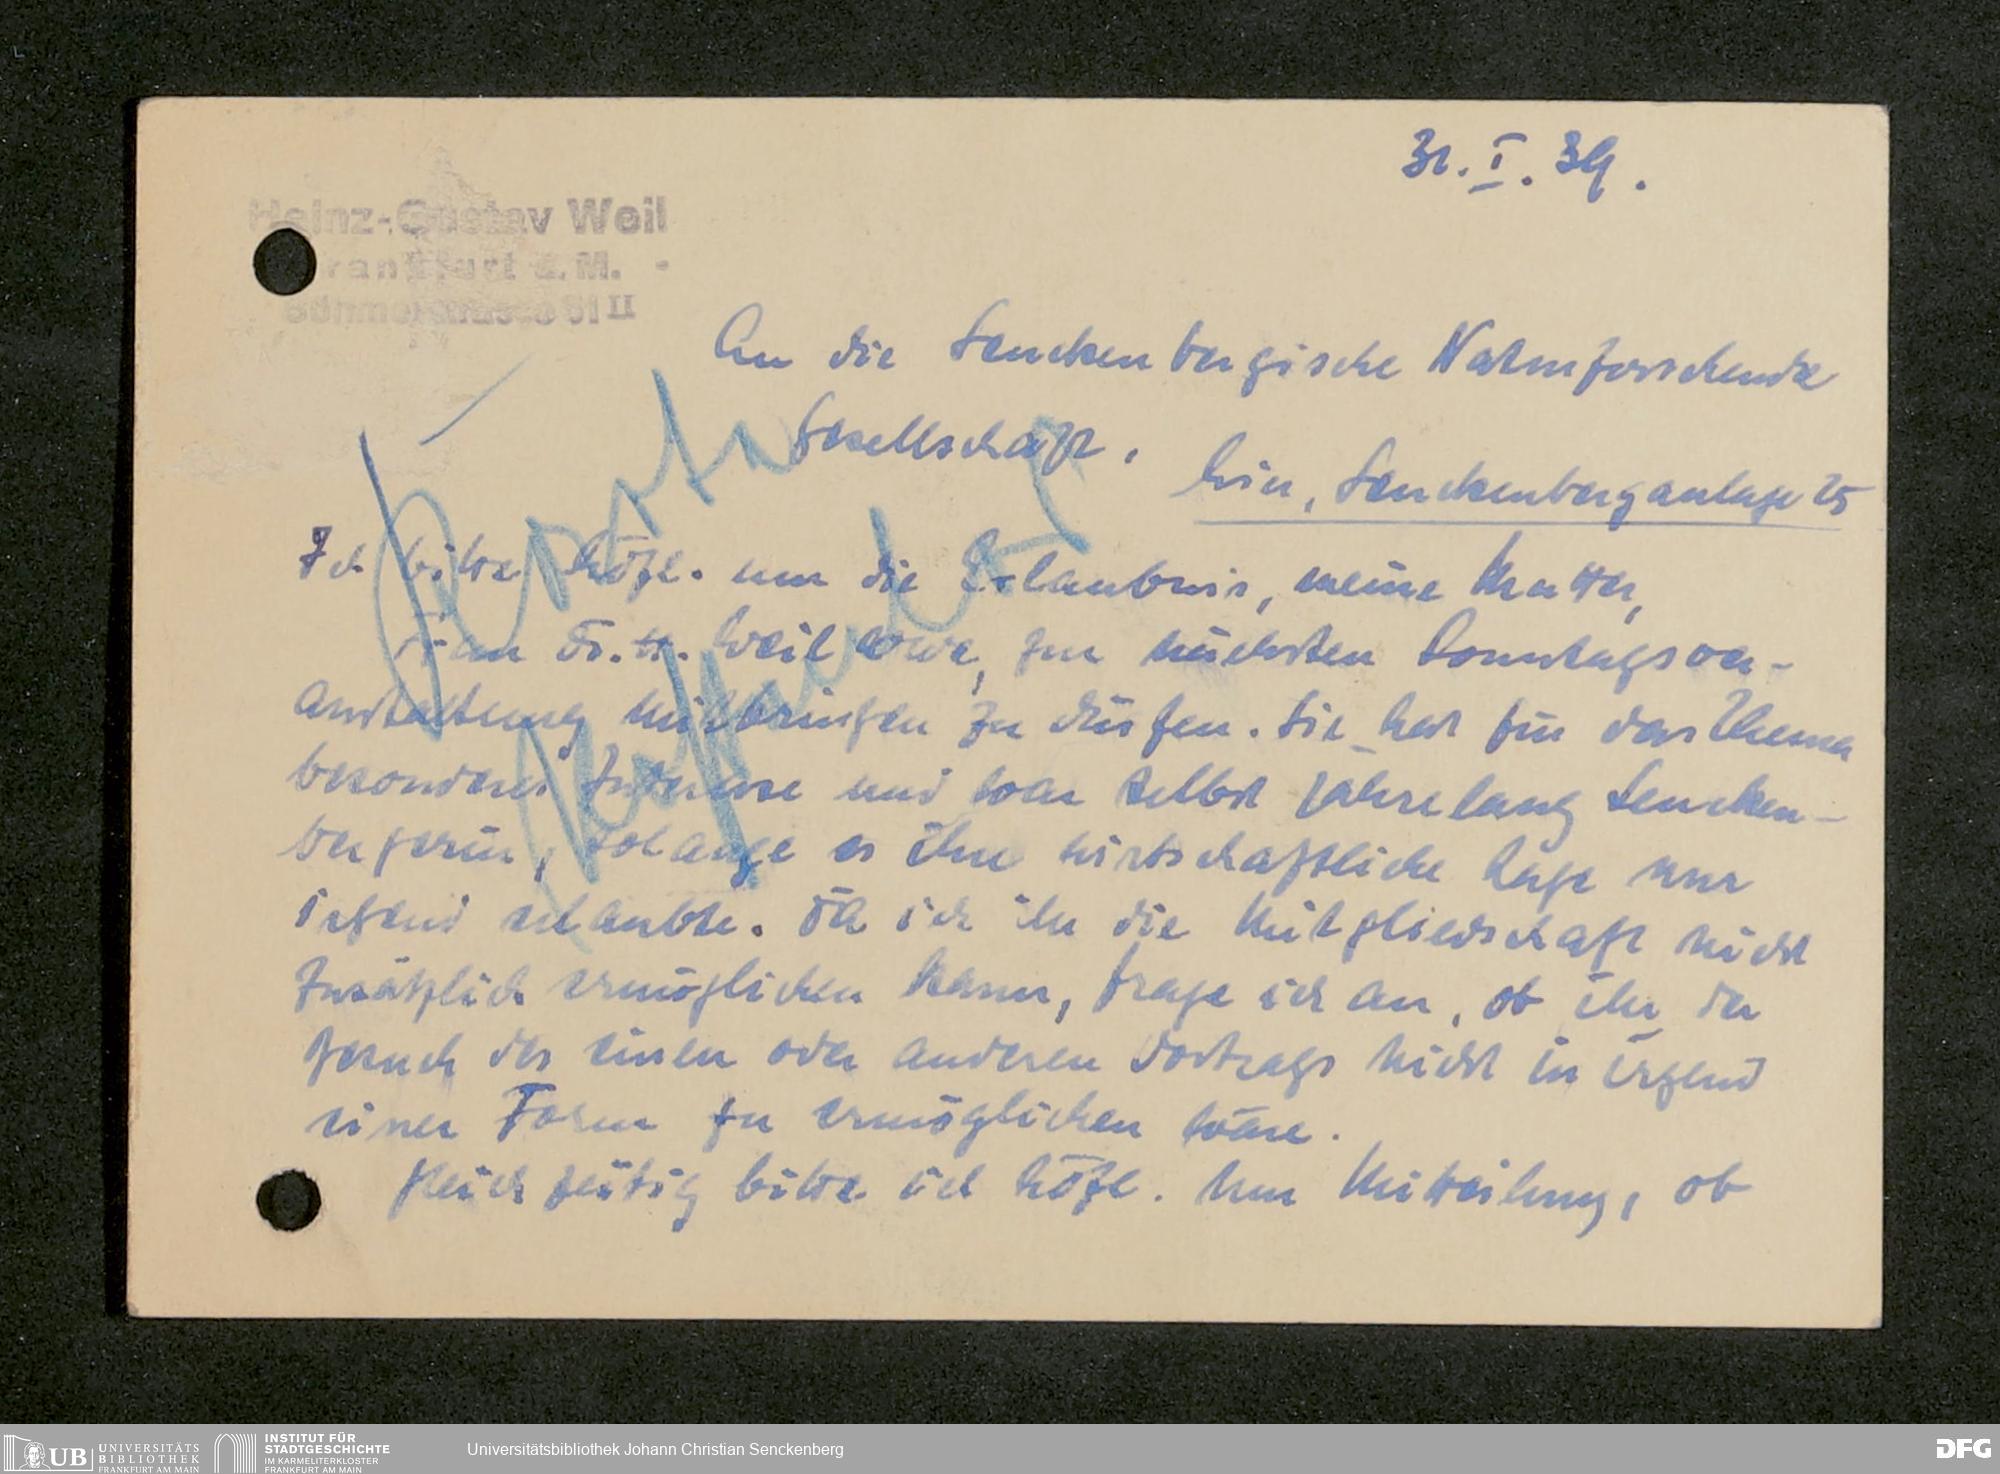 31. I. 39.
Heinz-Gustav Weil
Frankfurt a. M.
Böhmerstrasse 51 II
An die Senckenbergische Naturforschende
Gesellschaft.
Hier, Senckenberganlage 25
Ich bitte höfl. um die Erlaubnis, meine Mutter,
Frau Dr. H. Weil Wwe, zur nächsten Sonntagsver-
anstaltung mitbringen zu dürfen. Sie hat für das Thema
besonderes Interesse und war selbst jahrelang Sencken-
bergerin, solange es ihre wirtschaftliche Lage nur
irgend erlaubte. Da ich ihr die Mitgliedschaft nicht
zusätzlich ermöglichen kann, frage ich an, ob ihr der
Besuch des einen oder anderen Vortrags nicht in irgend
einer Form zu ermöglichen wäre.
Gleichzeitig bitte ich höfl. um Mitteilung, ob
UB UNIVERSITÄTS
BIBLIOTHEK
FRANKFURT AM MAIN
INSTITUT FÜR
STADTGESCHICHTE
IM KARMELITERKLOSTER
FRANKFURT AM MAIN
Universitätsbibliothek Johann Christian Senckenberg
DFG